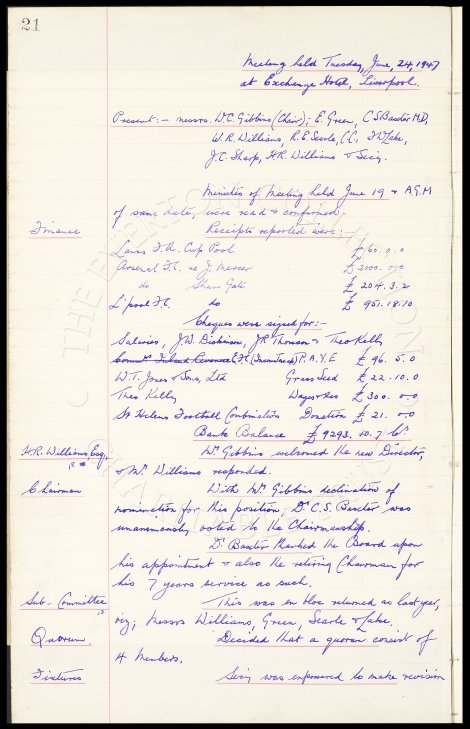 21
Meeting held Tuesday, June, 24, 1947
at Exchange Hotel, Liverpool.
Present:- Messrs. W.C. Gibbins (Chair); E. Green, C.S. Baxter M.D,
W.R. Williams, R.E. Searle, C.C.,
J.C. Sharp, H.R. Williams & Secy.
Minutes of Meeting held June 19 & A.G.M
of same date, were read & confirmed.
Finance
Receipts reported were:-
Lancs F.A. Cup Pool £ 60.0.0
Arsenal F.C. re J. Mercer £ 3000.0.0
do Share Gate £ 204.3.2
L'pool F.C. do £ 951.18.10
Cheques were signed for:-
Salaries, J.W. Dickinson, J.R. Thomson & Theo Kelly
P.A.Y.E £ 96.5.0
W.T. Jones & Sons, Ltd Grass Seed £ 22.10.0
Theo Kelly Wages &es £ 300.0.0
St Helens Football Combination Donation £ 21.0.0
Bank Balance £ 9293.10.7 Cr
H.R. Williams, Esq,
Mr Gibbins welcomed the new Director,
& Mr Williams responded.
Chairman
With Mr Gibbins declination of
nomination for this position, Dr C.S. Baxter was
unanimously voted to the Chairmanship.
Dr Baxter thanked the Board upon
his appointment & also the retiring Chairman for
his 7 years service as such.
Sub-Committee
This was en bloc returned as last year,
viz; Messrs Williams, Green, Searle & Lake.
Quorum
Decided that a quorum consist of
4 Members.
Fixtures
Secy was empowered to make revision